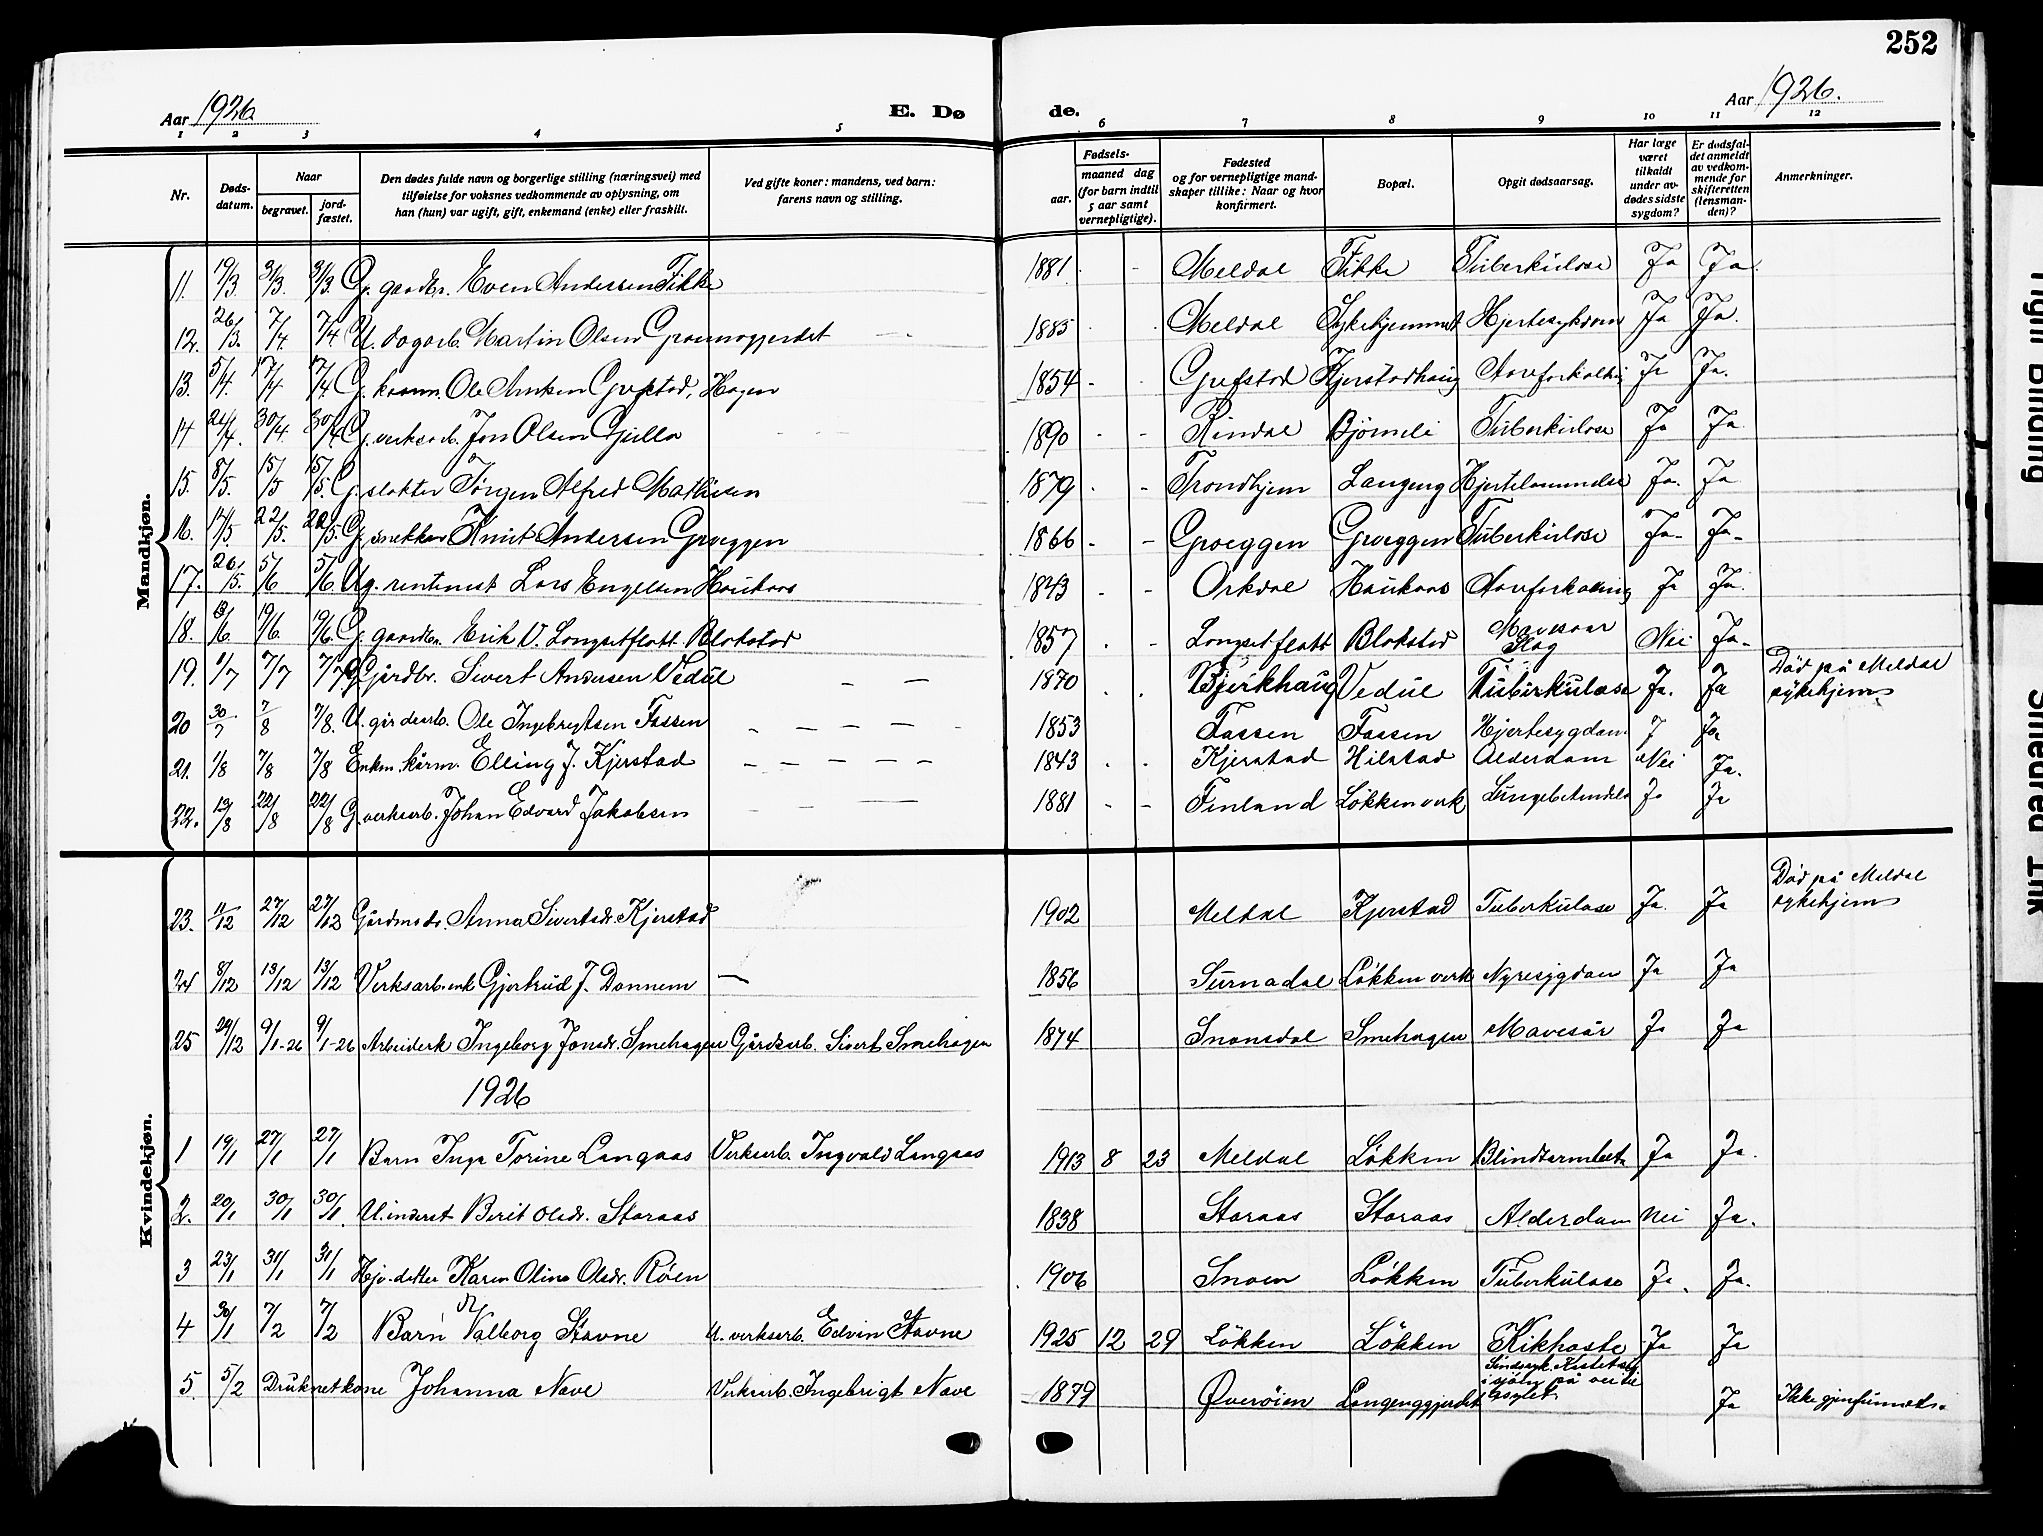 252
Aar 1926
E. Dø
de.
Aar 1926.
1 2 3 4 5 6 7 8 9 10 11 12
Nr.
Døds-
datum.
Naar
begravet.
jord-
fæstet.
Den dødes fulde navn og borgerlige stilling (næringsvei) med
tilføielse for voksnes vedkommende av oplysning, om
han (hun) var ugift, gift, enkemand (enke) eller fraskilt.
Ved gifte koner: mandens, ved barn:
farens navn og stilling.
Fødsels-
aar.
maaned dag
(for barn indtil
5 aar samt
vernepligtige).
Fødested
og for vernepligtige mand-
skaper tillike: Naar og hvor
konfirmert.
Bopæl.
Opgit dødsaarsag.
Har læge
været
tilkaldt
under av-
dødes sidste
sygdom?
Er dødsfal-
det anmeldt
av vedkom-
mende for
skifteretten
(lensman-
den)?
Anmerkninger.
Mandkjøn.
11. 19/3 31/3. 31/3. G. gaardbr. Even Andersen Fikke 1881 - Meldal Fikke Tuberkulose Ja Ja.
12. 26/3. 7/4 7/4 U. dagarb. Martin Olsen 1885 Meldal Sykehjemmet Hjertesykdom Ja Ja.
13. 5/4. 17/4 17/4 G. Ole Grefstad, Hagen 1854 - - Grefstad Kjerstadhaug Ja Ja.
14 30/4. 30/4 G. verksarb. Jon Olsen 1890 - - Rindal Bjørneli Tuberkulose Ja Ja
15. 8/5. 15/5 15/5. G. slakter Jørgen Alfred Mathisen 1879 - - Trondhjem Langeng Ja. Ja
16. 17/5. 22/5. 22/5. G. snekker Knut Andersen Græggen 1866 - - Græggen Græggen Tuberkulose Ja- Ja-
17. 26/5. 5/6 5/6 Ug. rentenist Lars Engelsen Haukaas 1843 - - Orkdal Haukaas Aareforkalkning Ja Ja.
18. 13/6 19/6. 19/6. G. gaardbr. Erik V. Langsetflatt. Blokstad 1857 . - Langsetflatt Blokstad Mavesaar
Slag Nei Ja-
19. 1/7 7/7 7/7 G Gårdbr. Sivert Andersen Vedul - - 1870 . . Bjerkhaug Vedul Tuberkulose Ja. Ja Död på Meldal
sykehjem
20 30/7 7/8 7/8. U. Ole Ingebregtsen Fossen - - - - - 1853 Fossen Fossen Hjertesygdom. J Ja
21. 1/8 7/8 7/8 Enkm. kårm. Elling J. Kjerstad - - - - - 1843 . . Kjerstad Hilstad Alderdom Nei Ja.
22. 13/8 22/8 22/8 G. verksarb. Johan Edvard Jakobsen - - - 1881 - - Finland Løkken verk Ja Ja
Kvindekjøn.
23. 11/12 27/12 27/12 Gårdmsdr. Anna Sivertsdr. Kjerstad 1902 Meldal Kjerstad Tuberkulose Ja. Ja Död på Meldal
sykehjem
24 8/12 13/12 13/12 Verksarb.enk Gjertrud J. Donnem — 1856 Surnadal Løkken verk Nyresygdom Ja Ja
25 29/12 9/1-26 9/1-26 Arbeiderk Ingeborg Jonsdr. Smehagen Gårdsarb. Sivert Smehagen 1874 Smehagen Mavesår Ja Ja
1926
1 19/1 27/1 27/1 Barn Inga Torine Langaas Verksarb. Ingvald Langaas 1913 8 23 Meldal Løkken Ja Ja.
2. 20/1 30/1 30/1. U. inderst Berit Olsdr. Storaas 1838 Storaas Storaas Alderdom Nei Ja.
3 23/1 31/1 31/1 Karen Olina Olsdr. Røen 1906 Snoen Løkken Tuberkulose Ja. Ja.
4 30/1 7/2 7/2 Barn Valborg Stavne U. verksarb. Edvin Stavne 1925 12 29 Løkken Løkken Kikhoste Ja Ja
5. 5/2 Druknet kone Johanna Nave Verksarb. Ingebrigt Nave 1879 Øverøien Langenggjerdet Sindssyk. Kastet seg
i sjøen på vei til
asylet. Ja Ikke gjenfunnet.